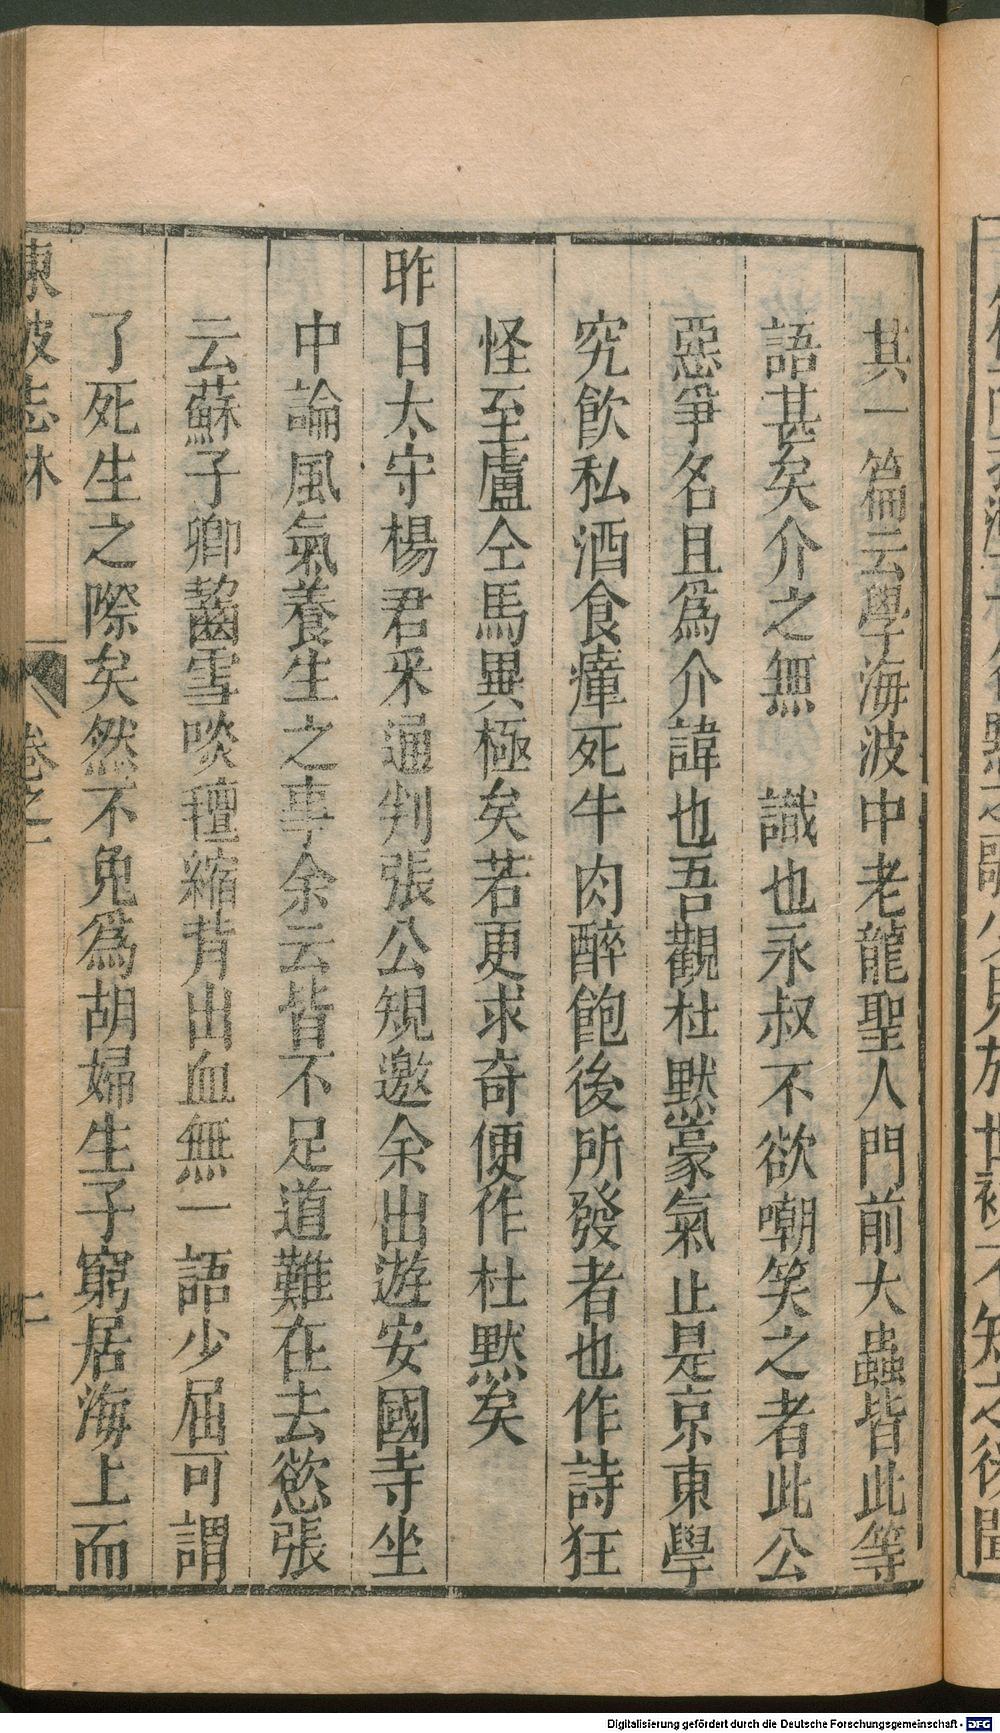 其一篇云學海波中老龍聖人門前大蟲皆此等
語甚矣介之無 識也永叔不欲嘲笑之者此公
惡爭名且爲介諱也吾觀杜默豪氣止是京東學
究飲私酒食瘴死牛肉醉飽後所發者也作詩狂
怪至盧仝馬異極矣若更求奇便作杜默矣
昨日太守楊君采通判張公規邀余出遊安國寺坐
中論風氣養生之事余云皆不足道難在去慾張
云蘇子卿齧雪啖氊縮背出血無一語少屈可謂
了死生之際矣然不免爲胡婦生子窮居海上而
東坡志林 卷之一 二
Digitalisierung gefördert durch die Deutsche Forschungsgemeinschaft - DFG